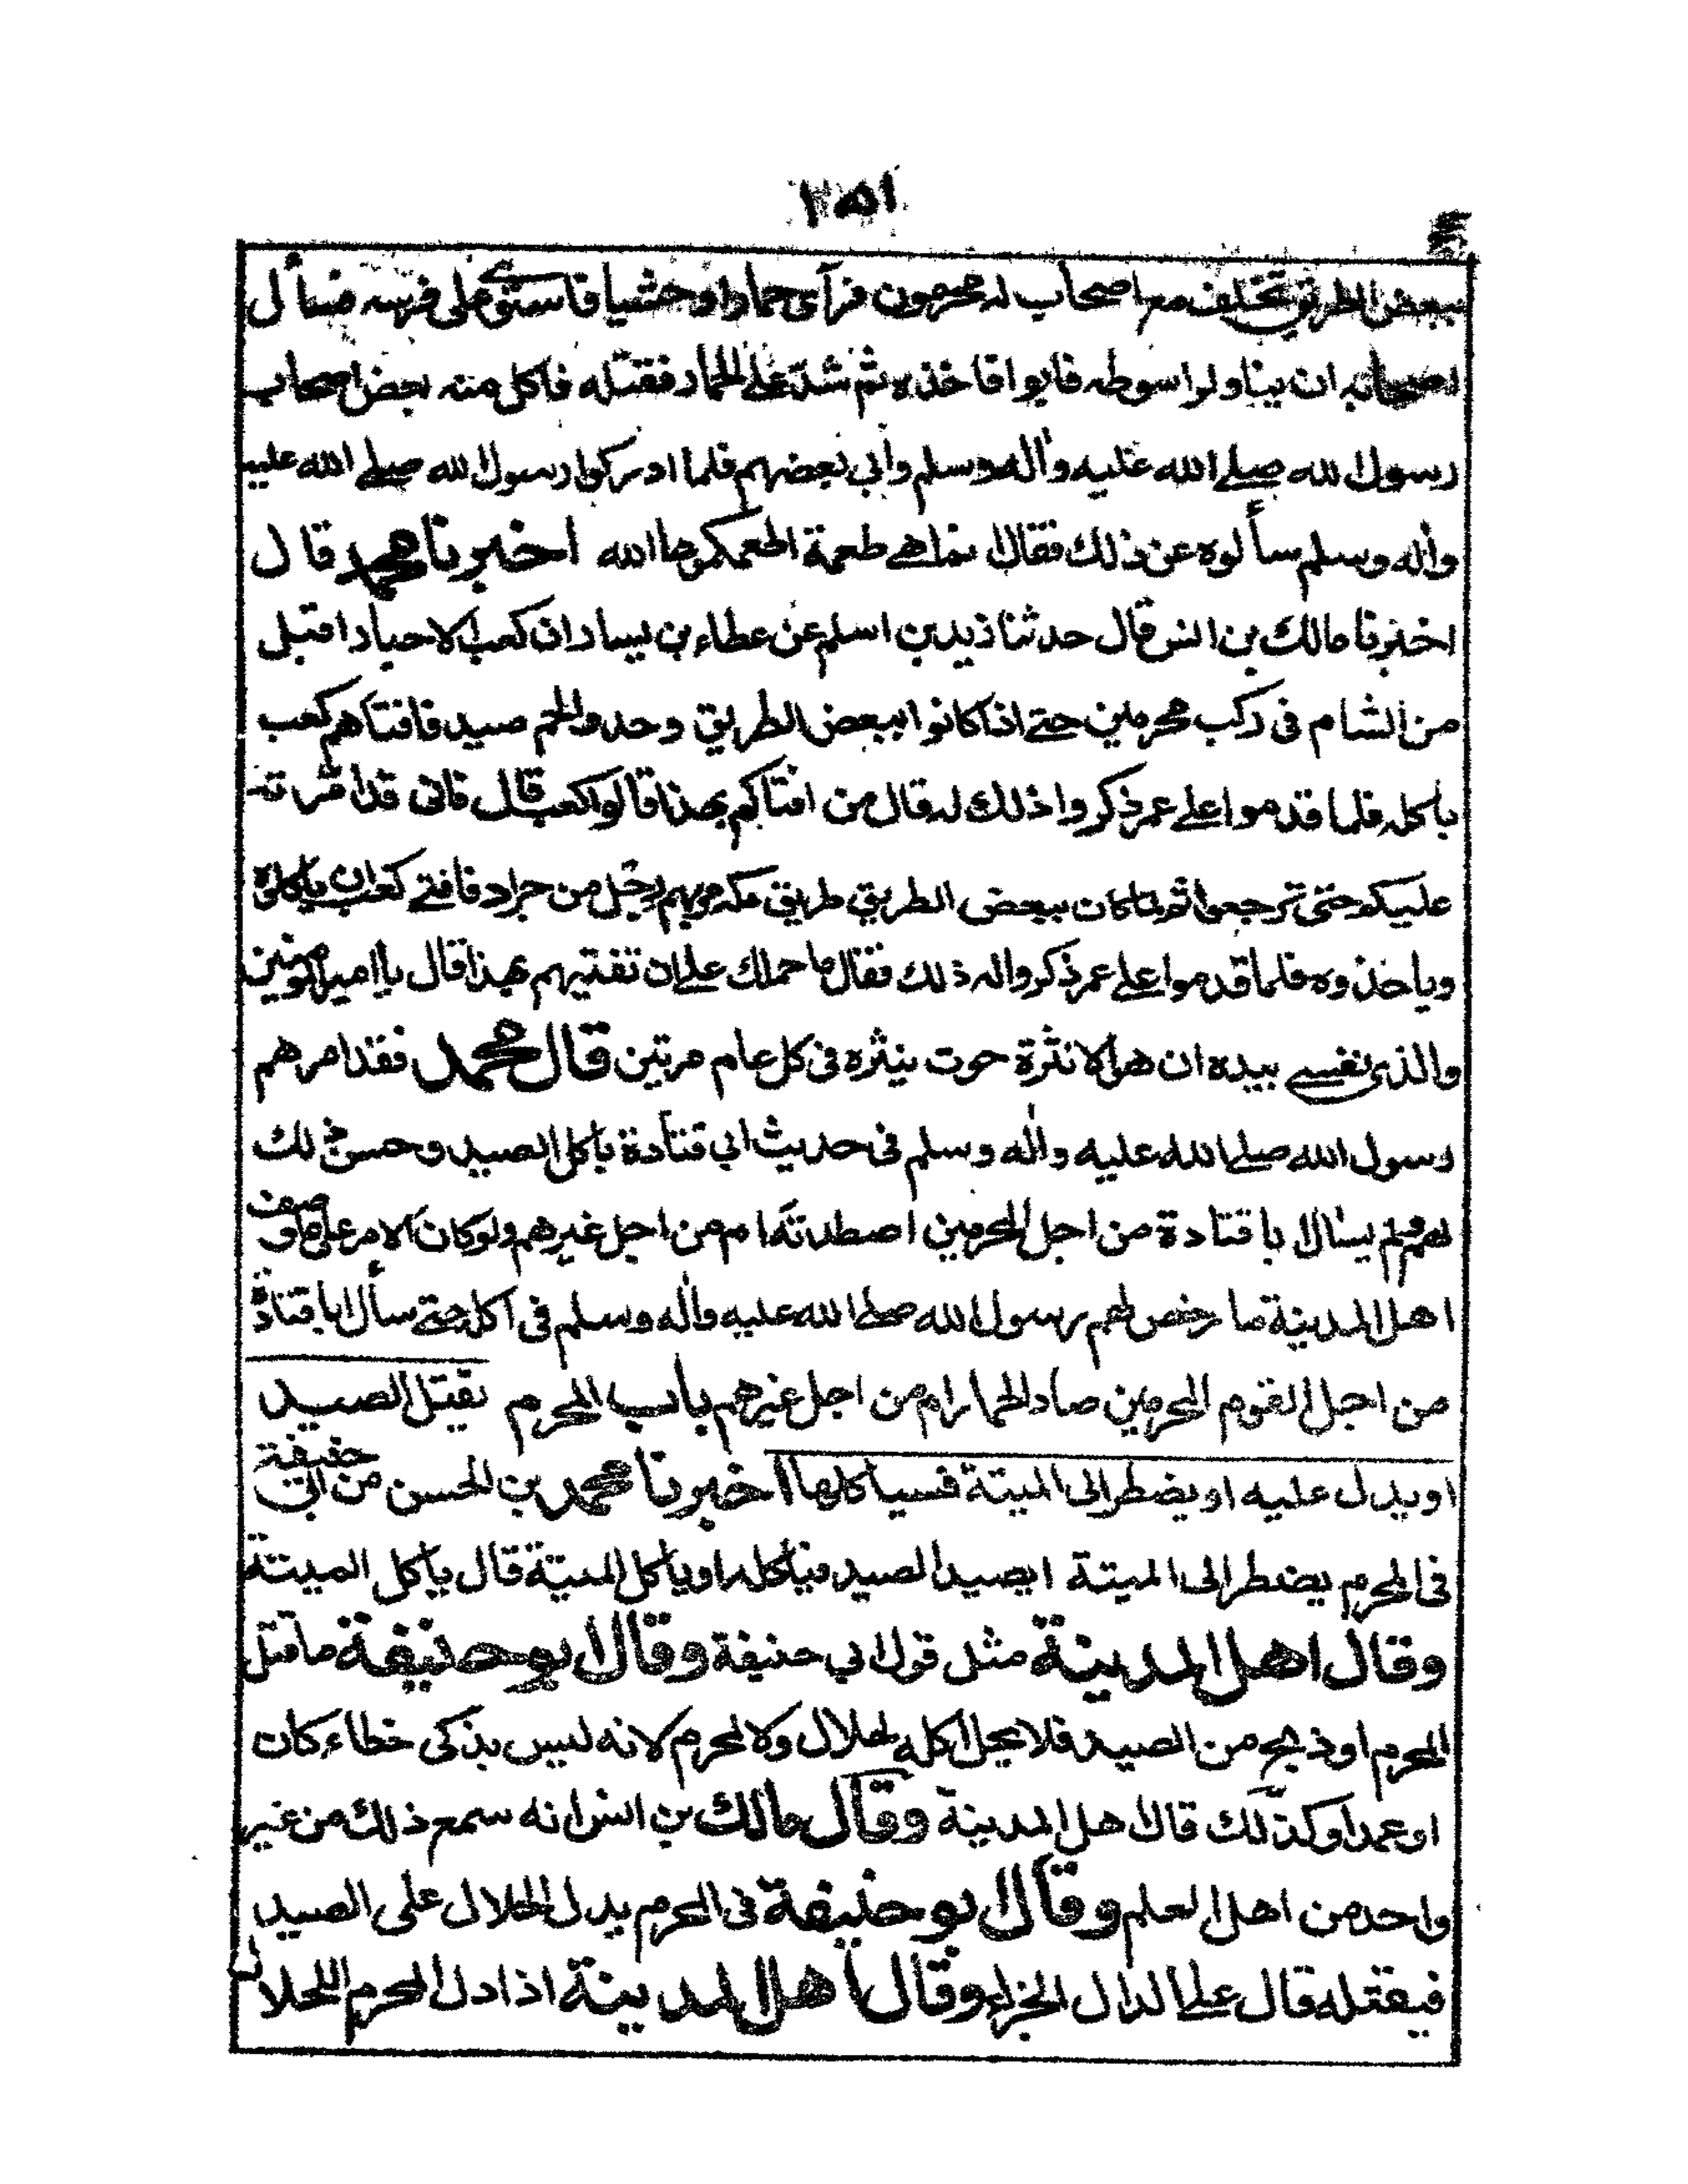 ١٥١
ببعض الطريق تخلف مع اصحاب له محرمون فرآى حمارا وحشيا فاستوى على فرسه فسأل
اصحابه ان يناولوا سوطه فابوا فاخذه ثم شد على الحمار فقتله فاكل منه بعض اصحاب
رسول الله صلى الله عليه واٰله وسلم وابى بعضهم فلما ادركوا رسول الله صلى الله عليه
واٰله وسلم سألوه عن ذلك فقال انما هى طعمة اطعمكموها الله اخبرنا محمد قال
اخبرنا مالك بن انس قال حدثنا زيد بن اسلم عن عطاء بن يسار ان كعب الاحبار اقبل
من الشام فى ركب محرمين حتى اذا كانوا ببعض الطريق وجدوا لحم صيد فافتاهم كعب
باكله فلما قدموا على عمر ذكروا ذلك له قال من افتاكم بهذا قالوا كعب قال فانى قد امرته
عليكم حتى ترجعوا ثم لما كان ببعض الطريق طريق مكة مر بهم رجل من جراد فافتى كعب ان ياكلوه
وياخذوه فلما قدموا على عمر ذكروا له ذلك فقال ما حملك على ان تفتيهم بهذا قال يا امير المومنين
والذى نفسى بيده ان هو الا نثرة حوت ينثره فى كل عام مرتين قال محمد فقد امرهم
رسول الله صلى الله عليه واٰله وسلم فى حديث ابى قتادة باكل الصيد وحسن ذلك
لهم فلم يسأل ابا قتادة من اجل المحرمين اصطدته ام من اجل غيرهم ولو كان الامر على ما وصف
اهل المدينة ما رخص لهم رسول الله صلى الله عليه واٰله وسلم فى اكله حتى سأل ابا قتادة
من اجل القوم المحرمين صاد الحمار ام من اجل غيرهم باب المحرم يقتل الصيد
او يدل عليه او يضطر الى الميتة فسياكلها اخبرنا محمد بن الحسن عن ابى حنيفة
فى المحرم يضطر الى الميتة ايصيد الصيد فياكله او ياكل الميتة قال ياكل الميتة
وقال اهل المدينة مثل قول ابي حنيفة وقال ابو حنيفة ما قتل
المحرم او ذبح من الصيد فلا يحل اكله لحلال ولا لمحرم لانه ليس بذكى خطاء كان
او عمدا وكذلك قال اهل المدينة وقال مالك بن انس انه سمع ذلك من غير
واحد من اهل العلم وقال ابو حنيفة فى المحرم يدل الحلال على الصيد
فيقتله قال على الدال الجزاء وقال اهل المدينة اذا دل المحرم الحلال